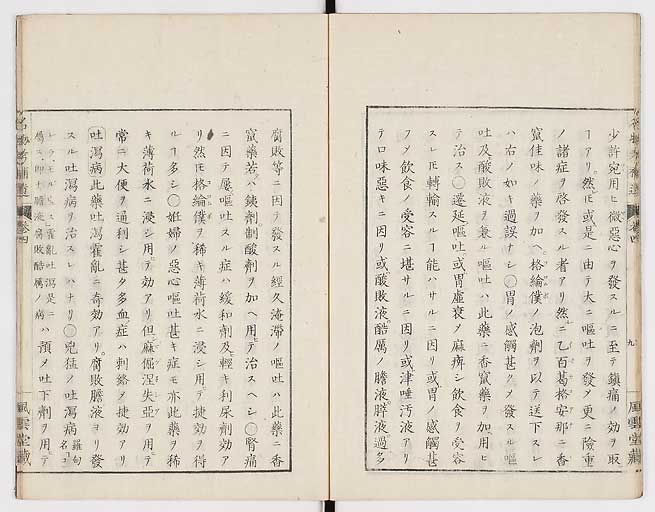 少許宛用ヒ微惡心ヲ發スルニ至テ鎮痛ノ効ヲ取
ーアリ然𪜈或是ニ由テ大ニ嘔吐ヲ發メ更ニ險重
ノ諸症ヲ啓發スル者アリ然ニ乙百葛格安那ニ香
竄佳味ノ藥ヲ加ヘ格綸僕ノ泡劑ヲ以テ送下スレ
ハ右ノ如キ過誤ナシ○胃ノ感觸甚クメ發スル嘔
吐及酸敗液ヲ兼ル嘔吐ハ此藥ニ香竄藥ヲ加用ヒ
テ治ス○遷延嘔吐或胃虚衰メ麻痺シ飲食ヲ受容
スレ𪜈轉輸スルー能ハサルニ因リ或胃ノ感觸甚
フメ飲食ノ受容ニ堪サルニ因リ或津唾汚液アリ
テ口味惡キニ因リ或酸敗液酷厲ノ膽液膵液過多
九
風雲堂藏
腐敗等ニ因テ發スル經久淹滯ノ嘔吐ハ此藥ニ香
竄藥若ハ銕劑制酸劑ヲ加ヘ用テ治スヘシ○腎痛
ニ因テ屢嘔吐スル症ハ緩和劑及輕キ利尿劑効ア
リ然𪜈格綸僕ヲ稀キ薄荷水ニ浸シ用テ捷効ヲ得
ルー多シ○姙婦ノ惡心嘔吐甚キ症モ亦此藥ヲ稀
キ薄荷水ニ浸シ用テ効アリ但麻倔涅失亞ヲ用テ
常ニ大便ヲ通利シ甚タ多血症ハ刺絡メ捷効アリ
吐瀉病此藥吐瀉霍亂ニ奇効アリ腐敗膽液ヨリ發
スル吐瀉病ヲ治スレハナリ○兇猛ノ吐瀉病羅句名コ
レラモルビュス霍亂吐瀉是ニ屬ス即チ膽液腐敗酷厲ノ病ハ預メ吐下劑ヲ用テ
卷四
風雲堂藏